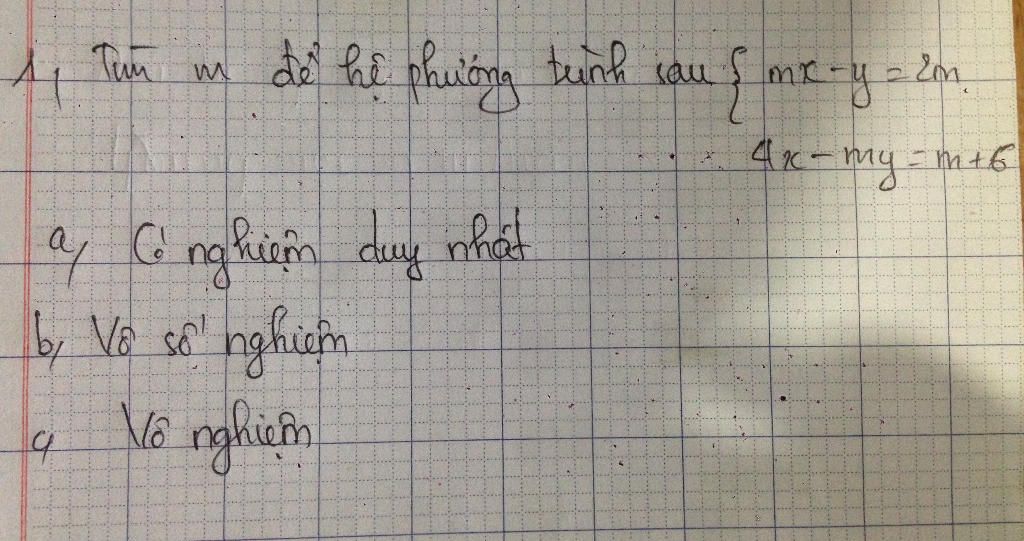 1, Tìm m để hệ phương trình sau { mx - y = 2m
4x - my = m + 6
a, Có nghiệm duy nhất
b, Vô số nghiệm
c, Vô nghiệm